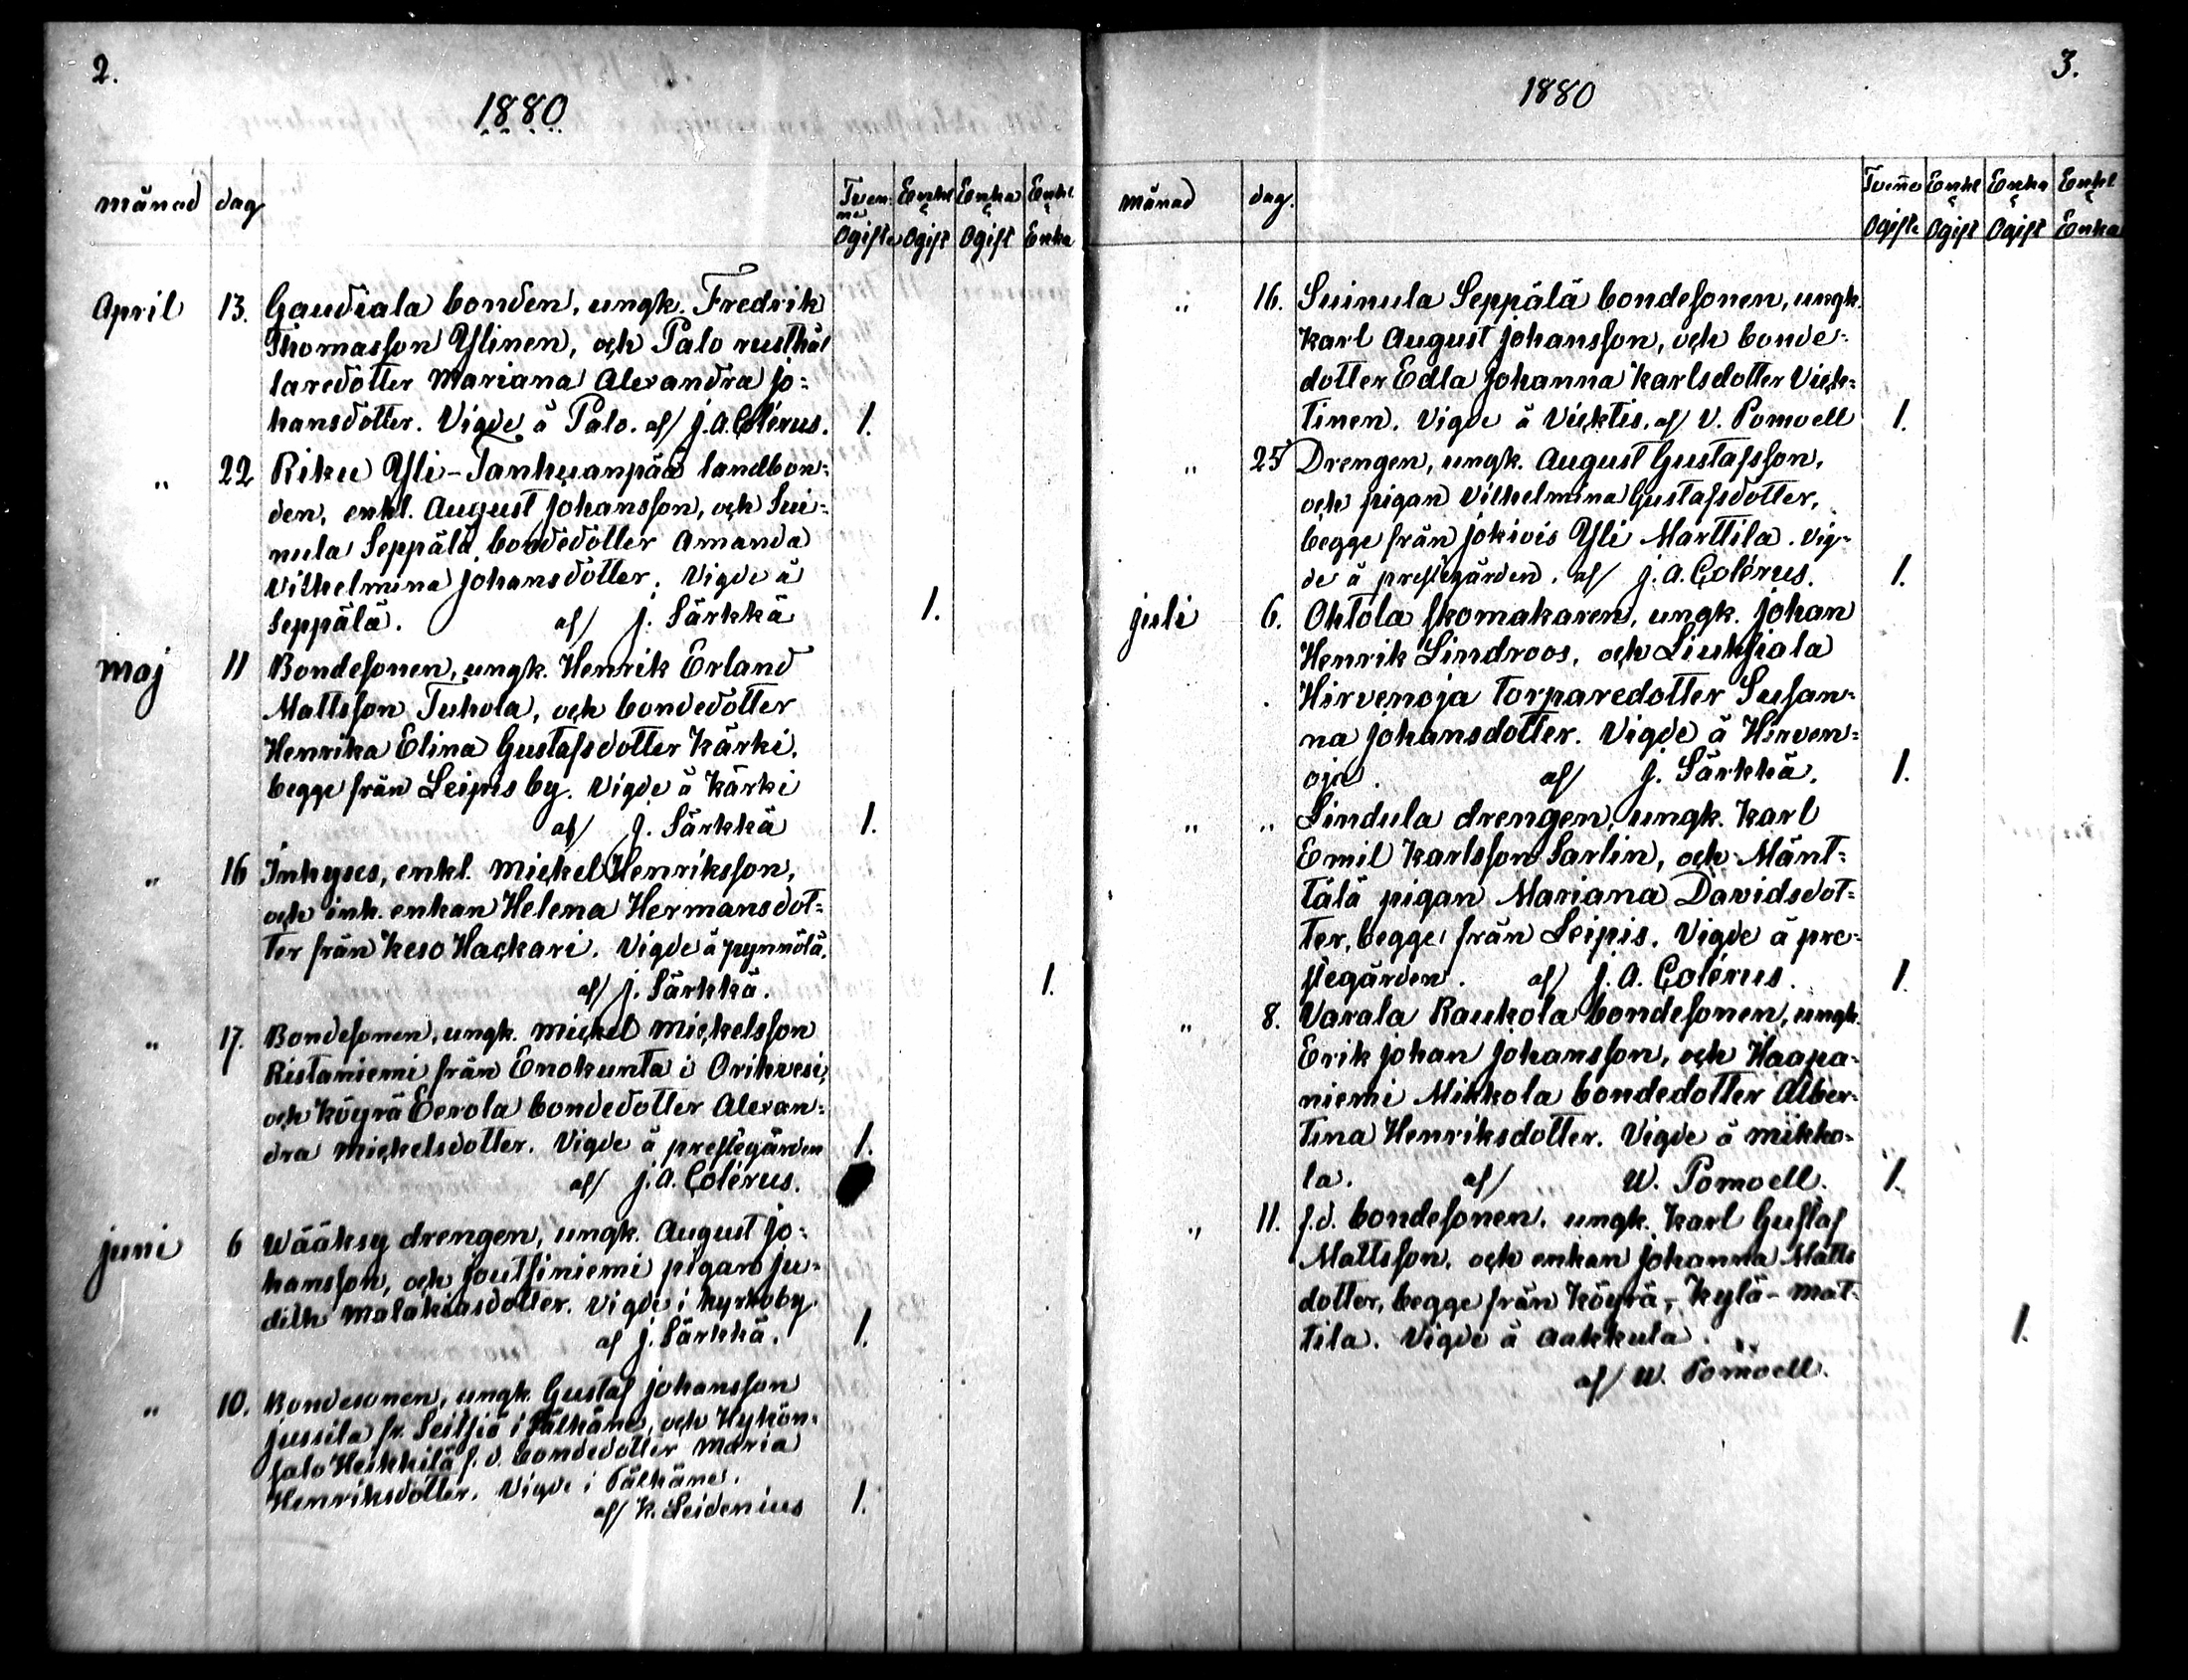 2.
1880
månad dag Tven- Enkl Enka Enkl
ne & & &
Ogifte Ogift Ogift Enka
April 13. Gaudiala bonden, ungk. Fredrik
Thomasson Ylinen, och Palo rusthål
laredotter Mariana Alexandra Jo-
hansdotter. Vigde å Palo. af/ J. A. Colérus. 1.
" 22 Riku Yli-Tanhuanpää landbon-
den, enkl. August Johansson, och Sui-
nula Seppälä bondedotter Amanda
Vilhelmina Johansdotter. Vigde å
Seppälä. af/ J. Särkkä 1.
Maj 11 Bondesonen, ungk. Henrik Erland
Mattsson Tuhola, och bondedotter
Henrika Elina Gustafsdotter Kärki,
begge från Leipis by. Vigde å Kärki
af/ J. Särkkä 1.
" 16 Inhyses, enkl. Mickel Henriksson,
och inh. enkan Helena Hermansdot-
ter från Keso Hackari. Vigde å Pynnölä.
af/ J. Särkkä. 1.
" 17. Bondesonen, ungk. Mickel Mickelsson
Ristaniemi från Enokunta i Orihvesi,
och Köyrä Eerola bondedotter Alexan-
dra Mickelsdotter. Vigde å prestegården 1.
af/ J. A. Colérus.
Juni 6 Wääksy drengen, ungk. August Jo-
hansson, och Joutsiniemi pigan Ju-
dith Malakiasdotter. Vigde i Kyrkoby
af J. Särkkä. 1.
" 10. Bondesonen, ungk. Gustaf Johansson
Jussila fr. Seitsiä i Pälkäne, och Hykön-
salo Heikkilä f. d. bondedotter Maria
Henriksdotter. Vigde i Pälkäne.
af/ K. Leidenius 1.
3.
1880
månad dag. Tvenne Enkl Enka Enkl
& & &
Ogifte Ogift Ogift Enka
" 16. Suinula Seppälä bondesonen, ungk.
Karl August Johansson, och bonde-
dotter Edla Johanna Karlsdotter Vick-
tinen. Vigde å Vicktis. af/ V. Pomoell 1.
" 25 Drengen, ungk. August Gustafsson,
och pigan Vilhelmina Gustafsdotter,
begge från Jokiois Yli Marttila. Vig-
de å prestegården. af/ J. A. Colérus. 1.
Juli 6. Ohtola skomakaren, ungk. Johan
Henrik Lindroos, och Liuksiala
Hirvenoja torparedotter Susan-
na Johansdotter. Vigde å Hirven-
oja. af/ J. Särkkä. 1.
" " Lindula drengen, ungk. Karl
Emil Karlsson Sarlin, och Mänt-
tälä pigan Mariana Davidsdot-
ter, begge från Leipis. Vigde å pre-
stegården. af/ J. A. Colérus. 1.
" 8. Varala Raukola bondesonen, ungk.
Erik Johan Johansson, och Haapa-
niemi Mikkola bondedotter Alber-
tina Henriksdotter. Vigde å Mikko-
la. af/ W. Pomoell. 1.
" 11. f. d. bondesonen, ungk. Karl Gustaf
Mattsson, och enkan Johanna Matts
dotter, begge från Köyrä, Kylä-Mat-
tila. Vigde å Aakkula. 1.
af/ W. Pomoell.